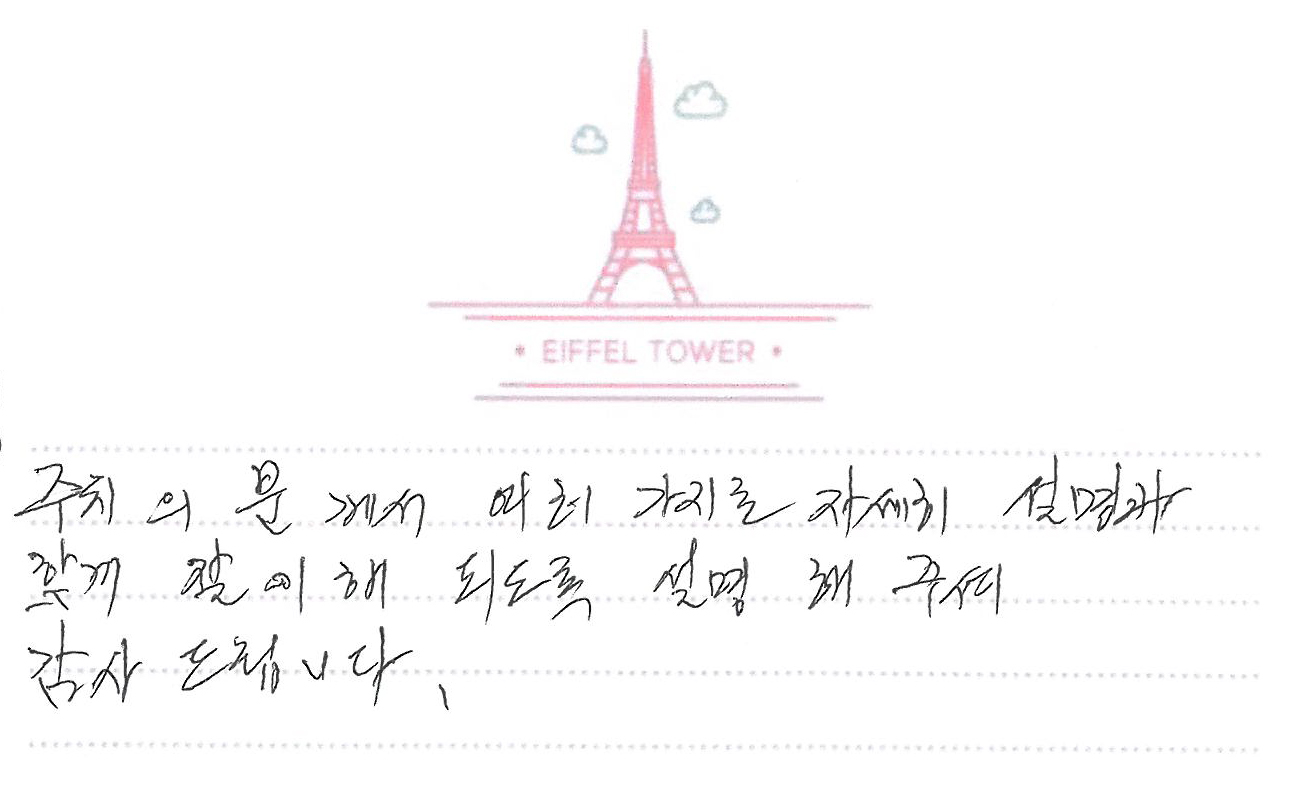 • EIFFEL TOWER •
주치의 분께서 여러 가지로 자세히 설명과
함께 잘 이해 되도록 설명 해 주셔
감사 드립니다.